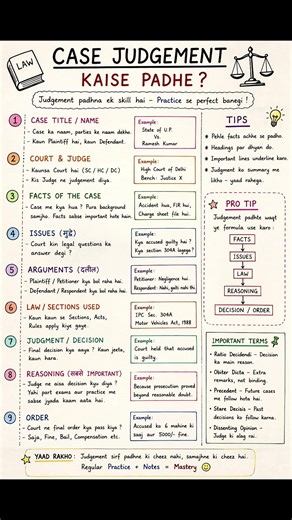 LAW
CASE JUDGEMENT
KAISE PADHE ?
Judgement padhna ek skill hai - Practice se perfect banegi !
1 CASE TITLE / NAME
- Case ka naam, parties ke naam dekho.
- Kaun Plaintiff hai, kaun Defendant.
Example:
State of U.P.
Vs.
Ramesh Kumar
2 COURT & JUDGE
- Kaunsa Court hai (SC / HC / DC)
- Kis Judge ne judgement diya.
Example:
High Court of Delhi
Bench: Justice X
3 FACTS OF THE CASE
- Case me kya hua ? Pura background
samjho. Facts sabse important hote hain.
Example:
Accident hua, FIR hui,
Charge sheet file hui.
4 ISSUES (मुद्दे)
- Court kin legal questions ka
answer degi ?
Example:
Kya accused guilty hai ?
Kya section 304A lagega ?
5 ARGUMENTS (दलील)
- Plaintiff / Petitioner kya bol raha hai.
- Defendant / Respondent kya bol raha hai.
Example:
Petitioner: Negligence hai.
Respondent: Nahi, galti nahi thi.
6 LAW / SECTIONS USED
- Kaun kaun se Sections, Acts,
Rules apply kiye gaye.
Example:
IPC Sec. 304A
Motor Vehicles Act, 1988
7 JUDGMENT / DECISION
- Final decision kya aaya ? Kaun jeeta,
kaun hara.
Example:
Court held that accused
is guilty.
8 REASONING (सबसे IMPORTANT)
- Judge ne aisa decision kyu diya ?
Yahi part exams aur practice me
sabse jyada kaam aata hai.
Example:
Because prosecution proved
beyond reasonable doubt.
9 ORDER
- Court ne final order kya pass kiya ?
Saja, Fine, Bail, Compensation etc.
Example:
Accused ko 6 mahine ki
saaj aur 5000/- fine.
TIPS
Pehle facts achhe se padho.
Headings par dhyan do.
Important lines underline karo.
Judgement ka summary me
likho - yaad rahega.
PRO TIP
Judgement padhte waqt
ye formula use karo :
FACTS
ISSUES
LAW
REASONING
DECISION / ORDER
IMPORTANT TERMS
Ratio Decidendi - Decision
ka main reason.
Obiter Dicta - Extra
remarks, not binding.
Precedent - Future cases
me follow hota hai.
Stare Decisis - Past
decisions ko follow karna.
Dissenting Opinion -
Judge ki alag rai.
YAAD RAKHO: Judgement sirf padhne ki cheez nahi, samajhne ki cheez hai.
Regular Practice + Notes = Mastery